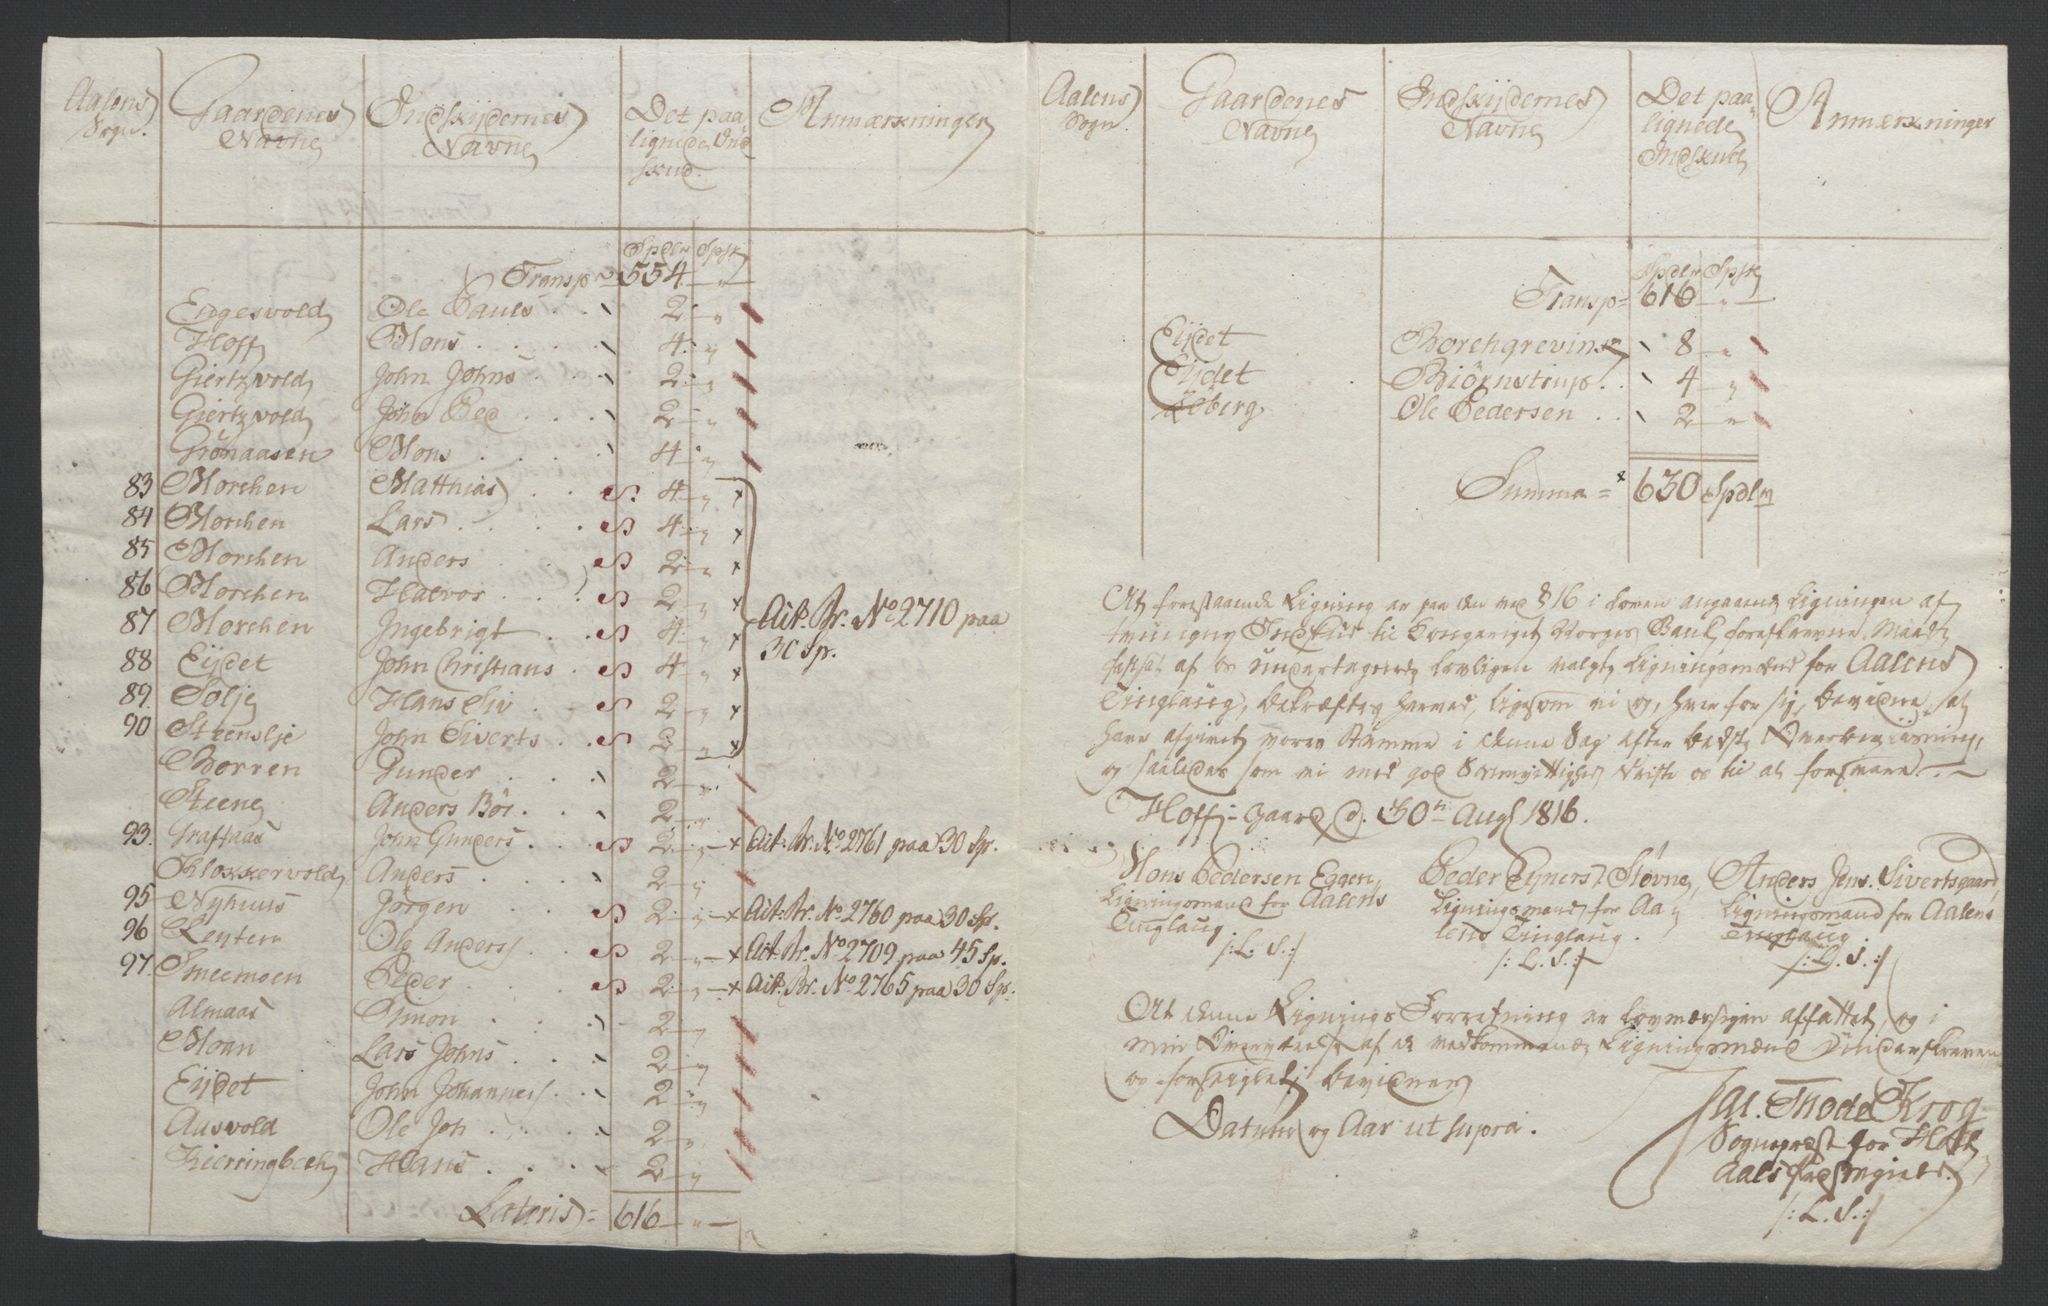 Aalens Sogn.
Gaardenes Navne
Indskydernes Navne
Det paa lignede Ind skud.
Anmærkninger
Spdlr Spsk
Transp = 554 — "
Engesvold Ole Pauls 2 "
Hoff Mons 4 "
Giertzvold John Johns 2 "
Giertzvold John Ped 2 "
Grönaasen Mons 4 "
83 Morchen Matthias S 4 " x
84 Morchen Lars S 4 " x
85 Morchen Anders S 2 " x
86 Morchen Halvor S 2 " x
87 Morchen Ingebrigt S 4 " x Ait. Br. No 2710 paa 30 Sp.
88 Eijdet John Christians S 4 " x
89 Solje Hans Siv S 2 " x
90 Steenslje John Siverts S 2 " x
Borren Gunder 2 "
Steene Anders Bör 2 "
93. Graftaas John Gunders S 2 " x Ait. Br. No 2761 paa 30 Sp.
Klokkervold Anders 2 "
95 Nyhuus Jörgen S 2 " x Ait. Br. No 2760 paa 30 Sp.
96 Lentern Ole Anders S 2 " x Ait. Br. No 2709 paa 45 Sp.
97. Smeemoen Peder S 2 " x Ait. Br. No 2765 paa 30 Sp.
Almaas Simon 2 "
Moan Lars Johns 2 "
Eijdet John Johannes 2 "
Ausvold Ole Joh 2 "
Kierringbech Hans 2 "
Lateris = 616 — " —
Aalens Sogn
Gaardenes Navne
Indskydernes Navne
Det paa lignede Indskud
Anmerkninger
Spdlr Spsk
Transp = 616 — " —
Eijdet Borchgrevink 8 "
Eijdet Biörnstrup 4 "
Aaberg Ole Pedersen 2 "
Summa = 630 Spdlr
At forestaaende Ligning er paa den ved § 16 i Loven angaaende Ligningen af
tvungne Indskud til Kongeriget Norges Bank foreskrevne Maade
fastsat af de undertegnede lovligen valgte Ligningsmænd for Aalens
Tinglaug, bekræftes herved, ligesom vi og, hver for sig, bevidne, at
have afgivet vores Stemme i denne Sag efter bedste Overbeviisning,
og saaledes som vi med god Samvittighed trøste os til at forsvare. —
Hoff-gaard d. 30te Augt 1816.
Mons Pedersen Eggen,
Ligningsmand for Aalens
Tinglaug
/: L. S. :/
Peder Ejners. Støvne,
Ligningsmand for Aa-
lens Tinglaug.
/: L. S. :/
Anders Jens. Sivertsgaard
Ligningsmand for Aalens
Tinglaug
/: L. S. :/
At denne Lignings Forretning er lovmæssigen affattet, og i
min Overværelse af de vedkommende Ligningsmænd underskreven
og forseiglet, bevidner
Datum og Aar ut supra.
Jac. Thode Krog
Sognepræst for Holt
Aalens
/: L. S. :/